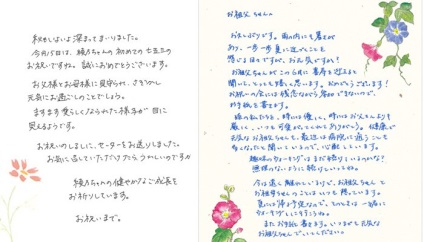 秋もいよいよ深まってまいりました。
今月15日は、綾乃ちゃんの初めての七五三の
お祝いですね。誠におめでとうございます。
お父様とお母様に見守られ、さぞかし
元気にお過ごしのことでしょう。
ますます愛らしくなられた様子が目に
見えるようです。
お祝いのしるしに、セーターをお送りしました。
お気に召していただけたらうれしいのですが
綾乃ちゃんの健やかなご成長を
お祈りしています。
お祝いまで。
お祖父ちゃんへ
お久しぶりです。雨の内にも暑さが
あり、一歩一歩夏に近づくことを
感じる頃ですが、お元気ですか?
お祖父ちゃんがこの六月に喜寿を迎えると
聞いて、とっても嬉しく思います。おめでとうございます!
お祝いの会には残念ながら参加できないので、
お手紙を書きます。
時には優しく、時にはお父さんより
厳しく、いつも可愛がってくれてありがとう。健康で
元気なお祖父ちゃんも、最近は病院に通うこと
も多くなったと聞いているので、心配しています。
趣味のウォーキングはまだ続けているのかな?
無理のないように続けていってね。
今は遠く離れているけど、お祖父ちゃん
お祖母ちゃんのことはいつも想っています。
夏には帰る予定なので、そのときは一緒に
ウォーキングしに行こうね。
またお手紙書きます。いつまでも元気な
お祖父ちゃんでいてください。